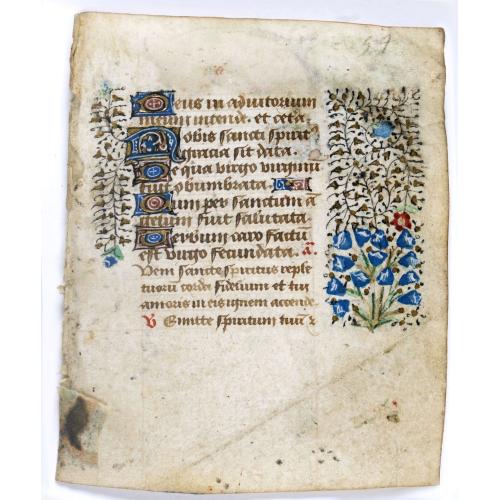 Deus in adiutorium
meum intende. et cetā
Nobis sancti spirit⁹
gracia sit data.
De qua virgo virginū
fuit obumbrata.
Cum per sanctum a
gelum fuit salutata
Verbum caro factū
est virgo fecundata. a.
Veni sancte spiritus reple
tuorū corda fidelium et tui
amoris in eis ignem accende
V Emitte spiritum tuū z